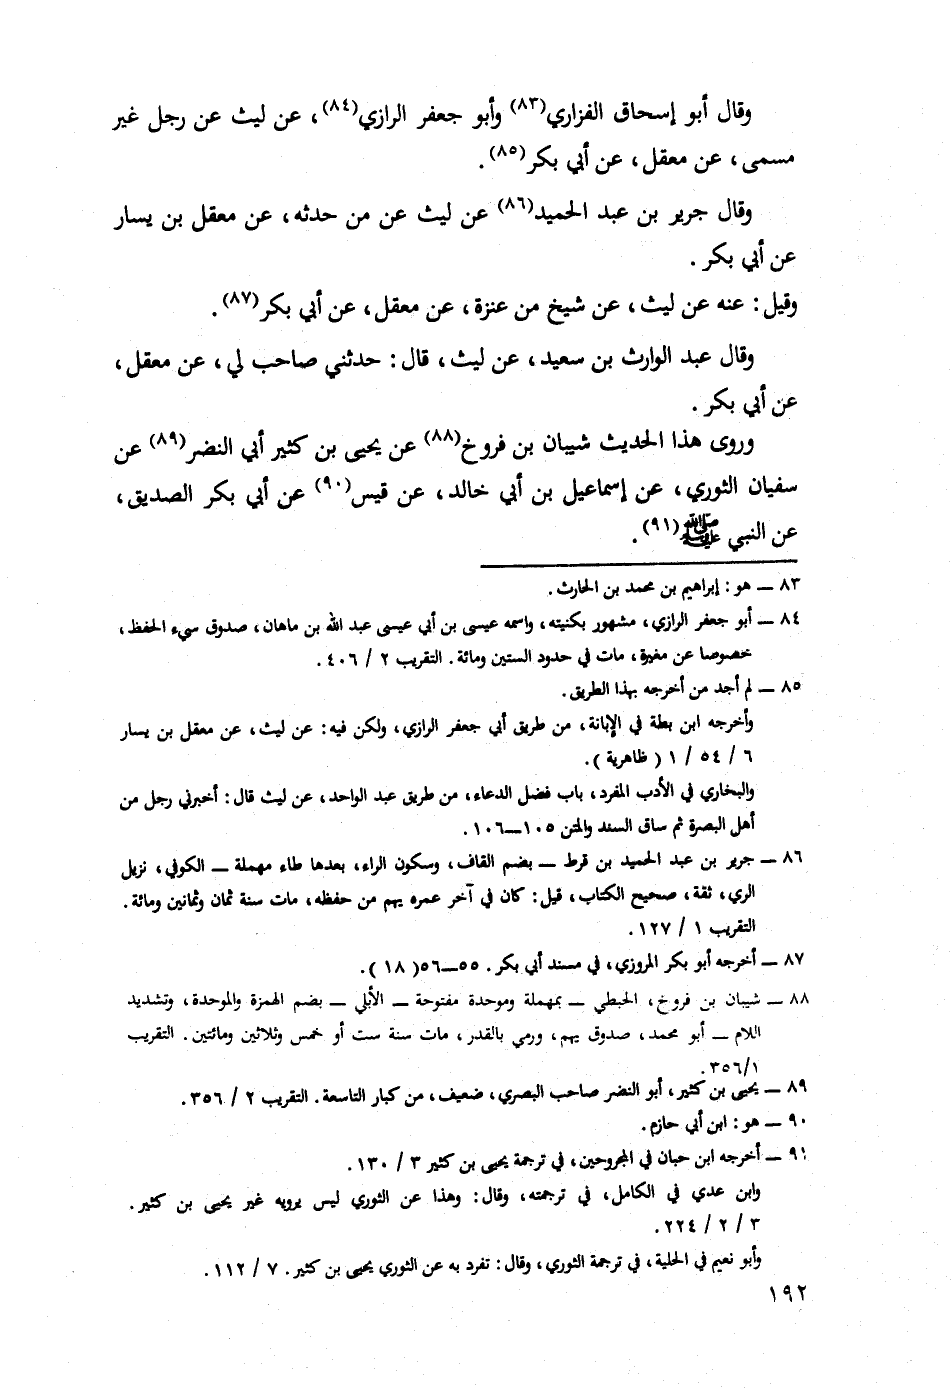 وقال أبو إسحاق الفزاري(٨٣) وأبو جعفر الرازي(٨٤) ، عن ليث عن رجل غير
مسمى ، عن معقل ، عن أبي بكر(٨٥) .
وقال جرير بن عبد الحميد(٨٦) عن ليث عن من حدثه ، عن معقل بن يسار
عن أبي بكر .
وقيل : عنه عن ليث ، عن شيخ من عنزة ، عن معقل ، عن أبي بكر(٨٧) .
وقال عبد الوارث بن سعيد ، عن ليث ، قال : حدثني صاحب لي ، عن معقل ،
عن أبي بكر .
وروى هذا الحديث شيبان بن فروخ(٨٨) عن يحيى بن كثير أبي النضر(٨٩) عن
سفيان الثوري ، عن إسماعيل بن أبي خالد ، عن قيس(٩٠) عن أبي بكر الصديق ،
عن النبي ﷺ(٩١) .
٨٣ ــ هو : إبراهيم بن محمد بن الحارث .
٨٤ ــ أبو جعفر الرازي ، مشهور بكنيته ، واسمه عيسى بن أبي عيسى عبد الله بن ماهان ، صدوق سيء الحفظ ،
خصوصا عن مغيرة ، مات في حدود الستين ومائة . التقريب ٢ / ٤٠٦ .
٨٥ ــ لم أجد من أخرجه بهذا الطريق .
وأخرجه ابن بطة في الإبانة ، من طريق أبي جعفر الرازي ، ولكن فيه : عن ليث ، عن معقل بن يسار
٦ / ٥٤ / ١ ( ظاهرية ) .
والبخاري في الأدب المفرد ، باب فضل الدعاء ، من طريق عبد الواحد ، عن ليث قال : أخبرني رجل من
أهل البصرة ثم ساق السند والمتن ١٠٥ــ١٠٦ .
٨٦ ــ جرير بن عبد الحميد بن قرط ــ بضم القاف ، وسكون الراء ، بعدها طاء مهملة ــ الكوفي ، نزيل
الري ، ثقة ، صحيح الكتاب ، قيل : كان في آخر عمره يهم من حفظه ، مات سنة ثمان وثمانين ومائة .
التقريب ١ / ١٢٧ .
٨٧ ــ أخرجه أبو بكر المروزي ، في مسند أبي بكر . ٥٥ــ٥٦( ١٨ ) .
٨٨ ــ شيبان بن فروخ ، الحبطي ــ بمهملة وموحدة مفتوحة ــ الأبلي ــ بضم الهمزة والموحدة ، وتشديد
اللام ــ أبو محمد ، صدوق يهم ، ورمي بالقدر ، مات سنة ست أو خمس وثلاثين ومائتين . التقريب
٣٥٦/١ .
٨٩ ــ يحيى بن كثير ، أبو النضر صاحب البصري ، ضعيف ، من كبار التاسعة . التقريب ٢ / ٣٥٦ .
٩٠ ــ هو : ابن أبي حازم .
٩١ ــ أخرجه ابن حبان في المجروحين ، في ترجمة يحيى بن كثير ٣ / ١٣٠ .
وابن عدي في الكامل ، في ترجمته ، وقال : وهذا عن الثوري ليس يرويه غير يحيى بن كثير .
٣ / ٢ / ٢٢٤ .
وأبو نعيم في الحلية ، في ترجمة الثوري ، وقال : تفرد به عن الثوري يحيى بن كثير . ٧ / ١١٢ .
١٩٢